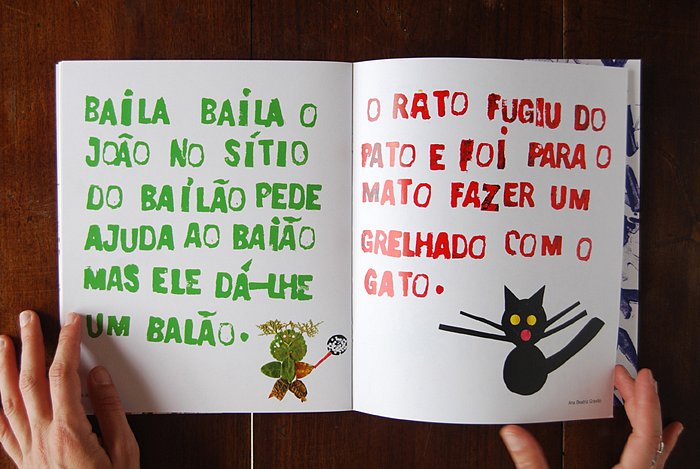 BAILA BAILA O
JOÃO NO SÍTIO
DO BAILÃO PEDE
AJUDA AO BAIÃO
MAS ELE DÁ-LHE
UM BALÃO.
O RATO FUGIU DO
PATO E FOI PARA O
MATO FAZER UM
GRELHADO COM O
GATO.
Ana Beatriz Gravito